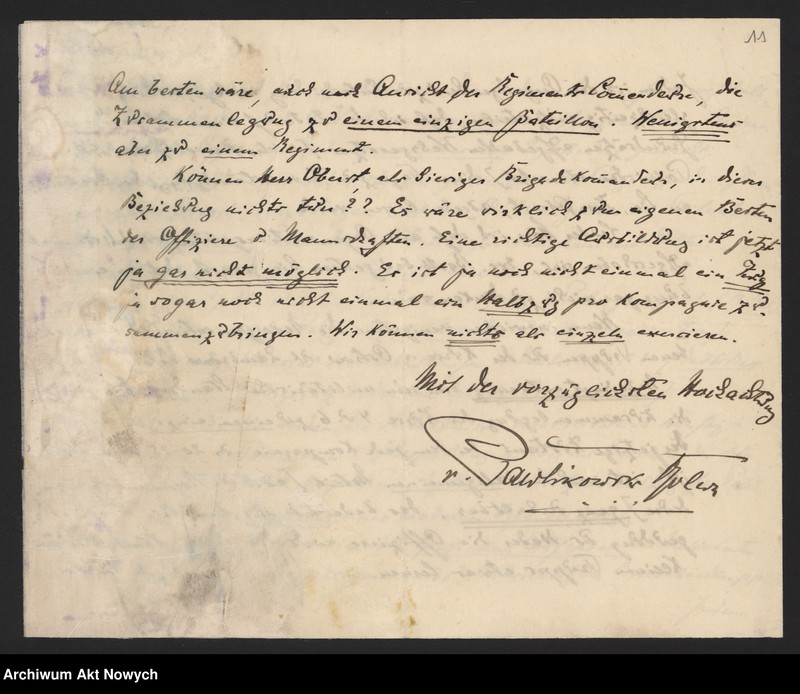 11
Am besten wäre, auch nach Ansicht der Regiments Com̄andeure, die
Zusammenlegung zu einem einzigen Bataillon. Wenigstens
aber zu einem Regiment.
Können Herr Oberst, als hiesiger Brigadekom̄andeur, in dieser
Beziehung nichts tun?? Es wäre wirklich zum eigenen Besten
der Offiziere u Mannschaften. Eine richtige Ausbildung ist jetzt
ja gar nicht möglich. Es ist ja noch nicht einmal ein Zug,
ja sogar noch nicht einmal ein Halbzug pro Kompagnie zu-
sammenzubringen. Wir können nichts als einzeln exercieren.
Mit der vorzüglichsten Hochachtung
v. Pawlikowski
Archiwum Akt Nowych